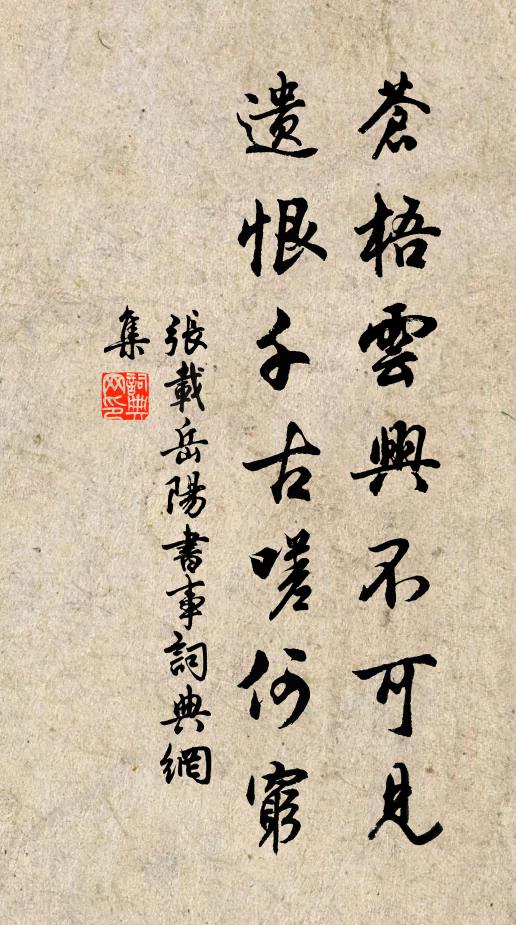 蒼梧雲興不可見
遺恨千古嗟何窮
張載岳陽書事詞典網
集
詞典
网印